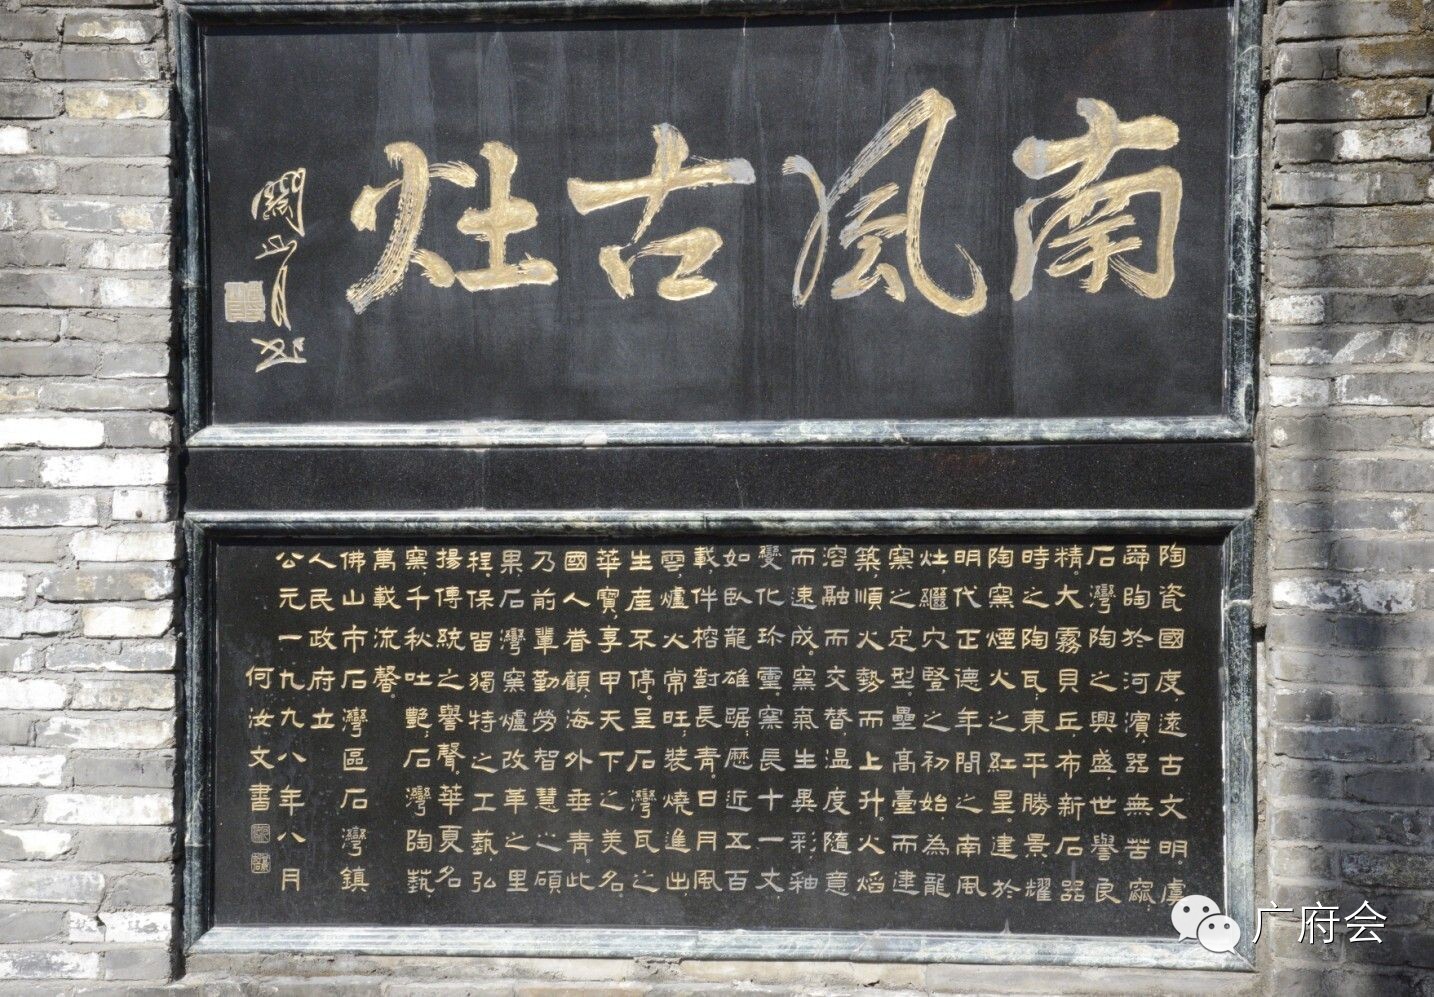 南風古灶
關山月
陶瓷國度，遠古文明。虞
舜陶於河濱，器無苦窳，
石灣陶之興盛世譽良
精。大霧貝丘，布新石器
時之陶瓦，東平勝景，耀
陶窯煙火之紅星。建於
明代正德年間之南風
灶，繼穴豎之初始，為龍
窯之定型。壘高臺而建
築，順火勢而上升。火焰
溶融而交替，溫度隨意
而速成。窯氣生異彩，釉
變化珍靈。窯長十一丈，
如臥龍雄踞，歷近五百
載，伴榕封長青。日月風
雲，爐火常旺，裝燒進出，
生產不停。呈石灣瓦之
華寶，享甲天下之美名。
國人眷顧，海外垂青。此
乃前輩勤勞智慧之碩
果，石灣窯爐改革之里
程。保留獨特之工藝，弘
揚傳統之譽聲。華夏名
窯，千秋吐艷，石灣陶藝，
萬載流馨。
佛山市石灣區石灣鎮
人民政府立
公元一九九八年八月
何汝文書
广府会